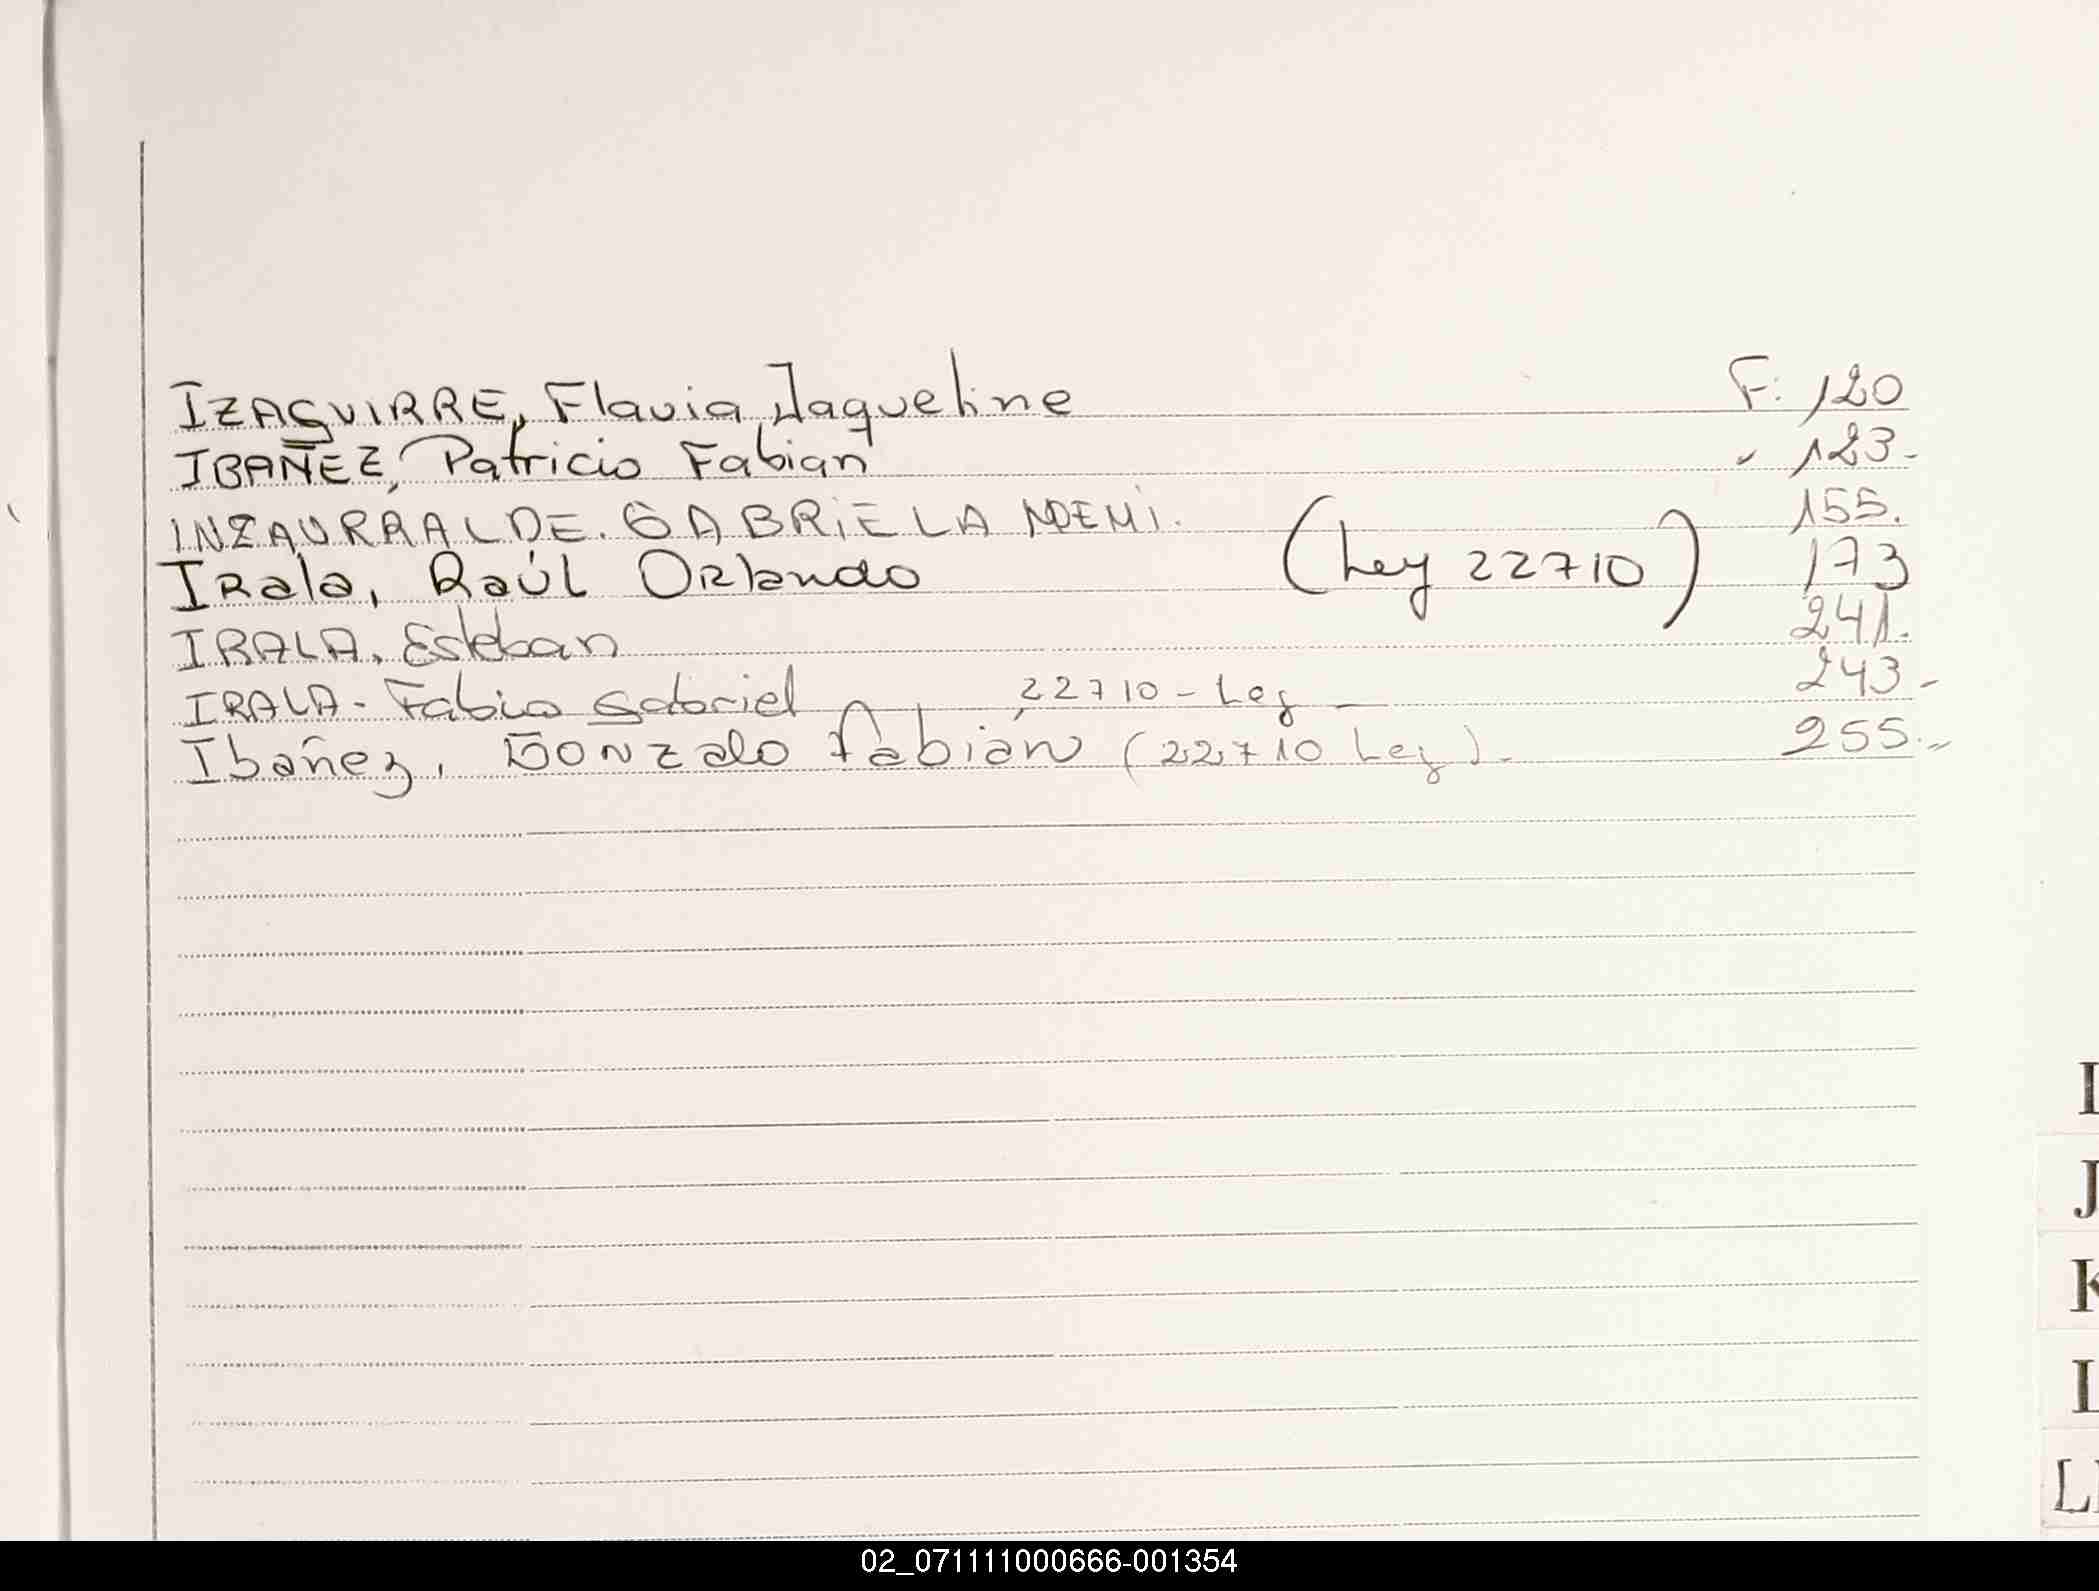 IZAGUIRRE, Flavia Jaqueline F: 120
IBAÑEZ, Patricio Fabian " 123-
INZAURRALDE. GABRIELA NOEMI. 155.
Irala, Raúl Orlando (Ley 22710) 173
IRALA, Esteban 241.
IRALA - Fabio Gabriel 22710 - Ley - 243-
Ibañez, Gonzalo Fabián (22710 Ley). 255.-
I
J
K
L
LL
02_071111000666-001354